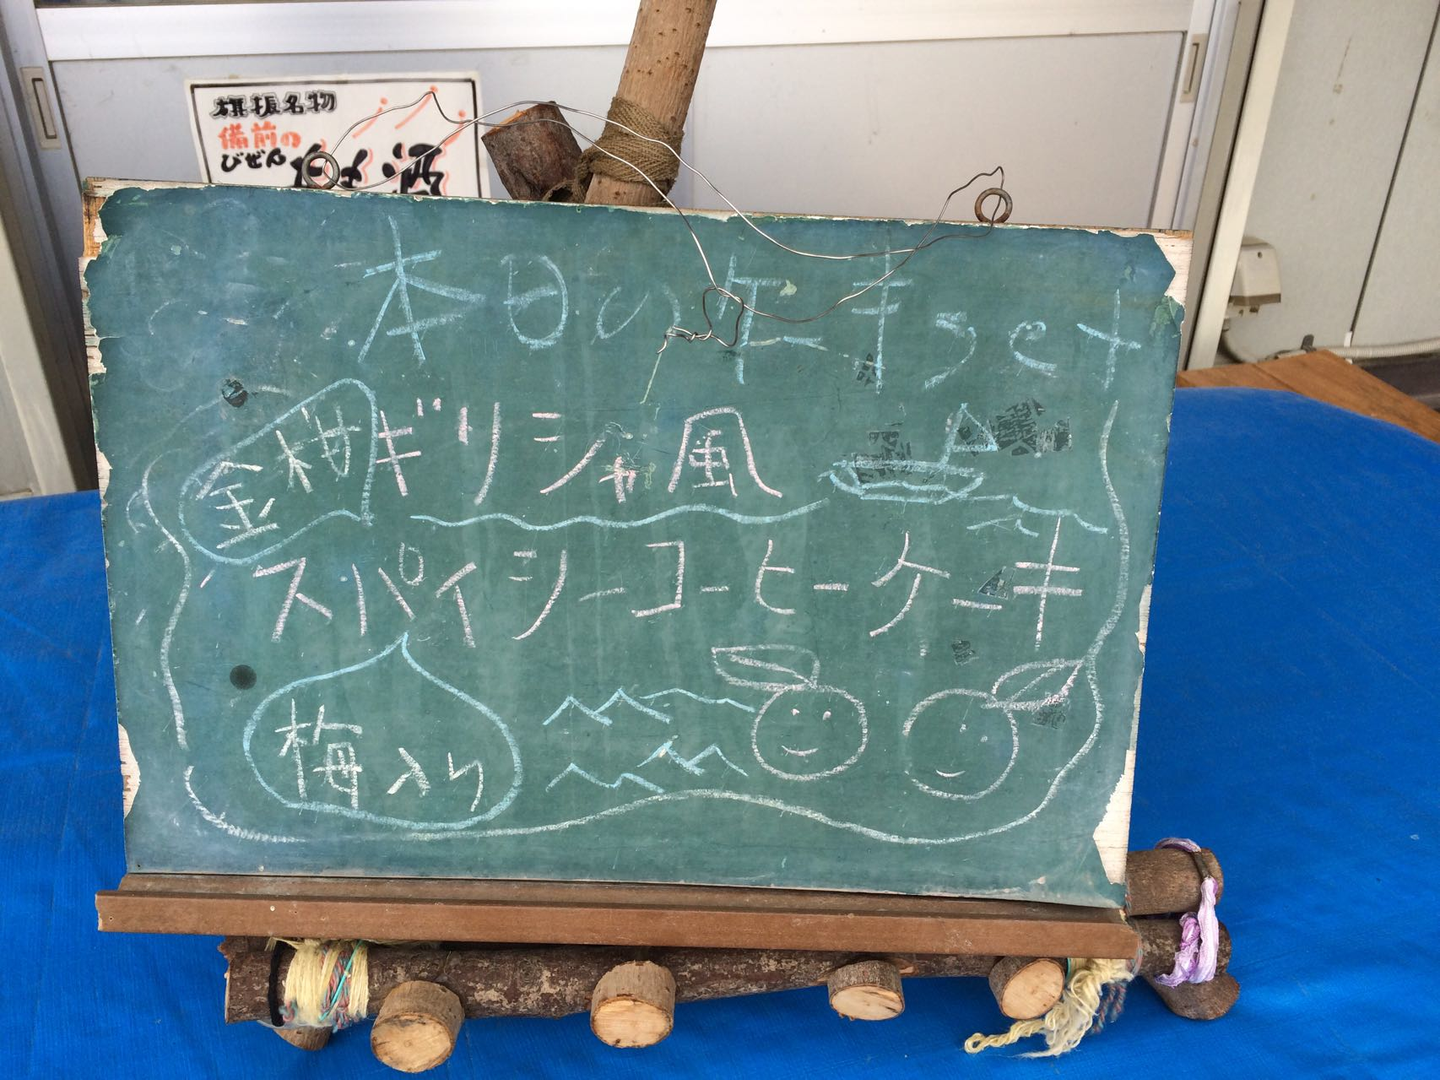 旗振名物
備前の
びぜん
酒
本日のケーキset
金柑 ギリシャ風
スパイシーコーヒーケーキ
梅入り